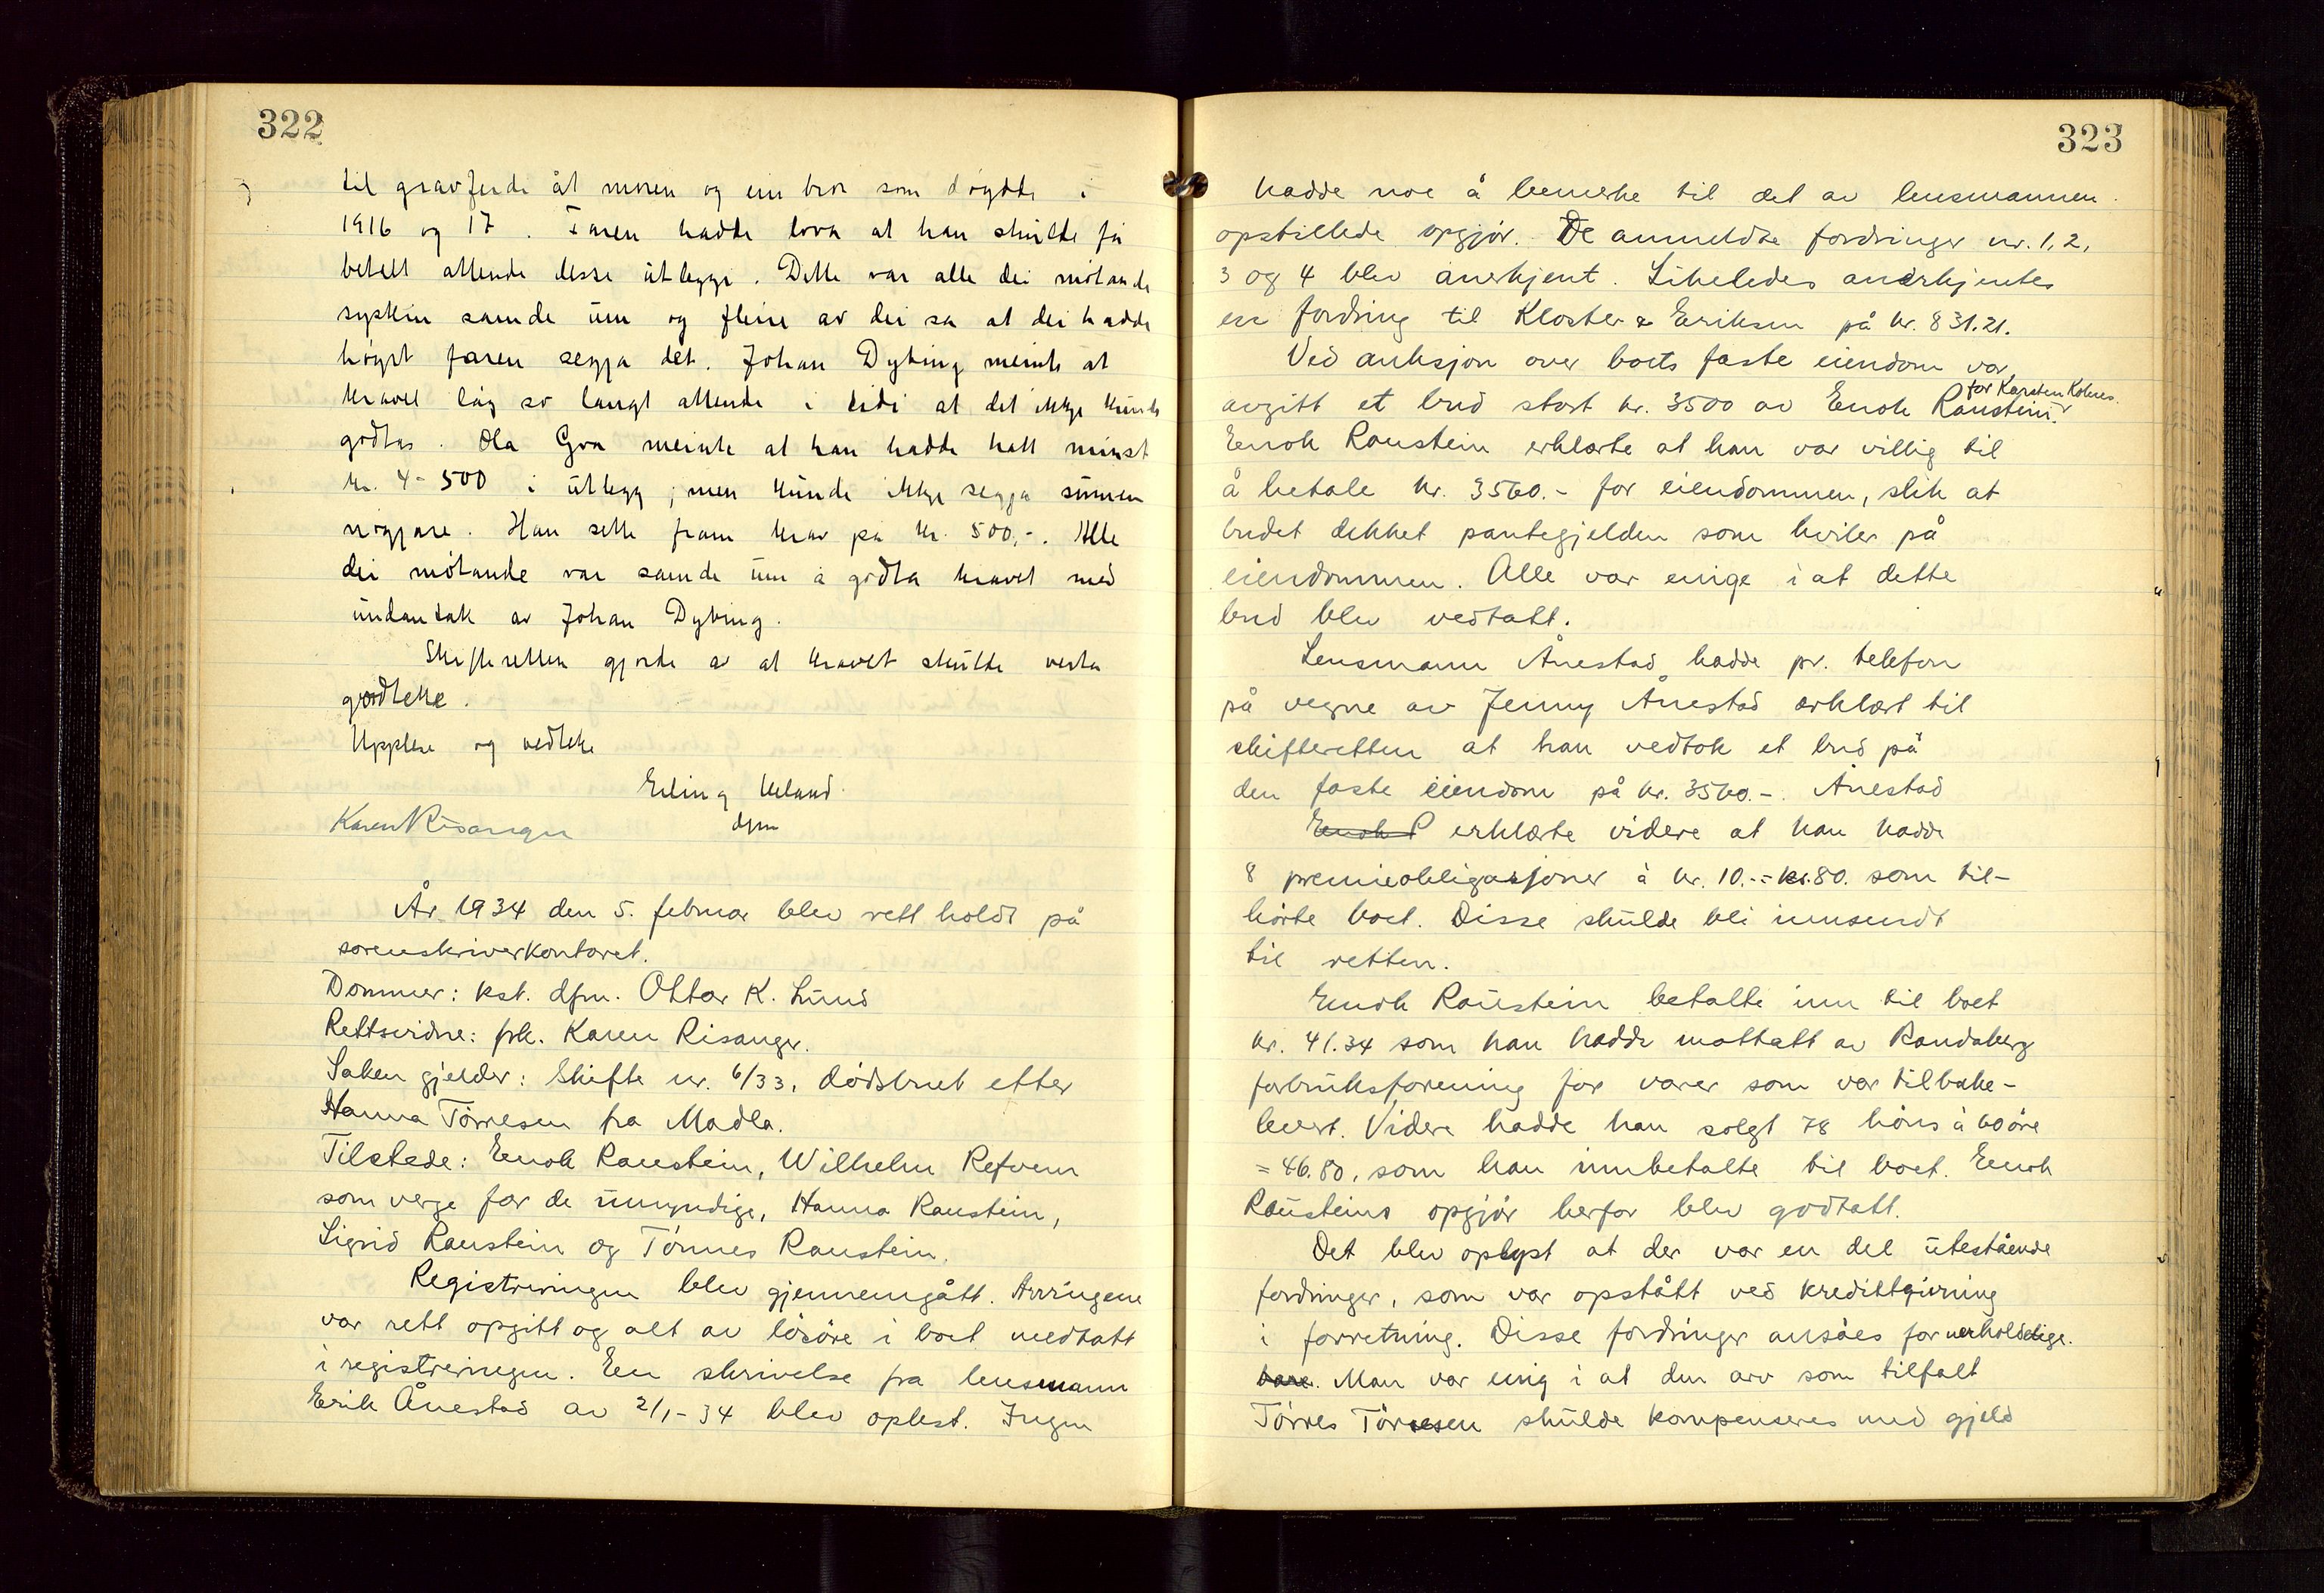 322
til gravferde åt moren og ein bror som døydde i
1916 og 17. Faren hadde lova at han skulde få
betalt attende desse utlegge. Dette var alle dei møtande
syskin samde um og fleire av dei sa at dei hadde
høyrt faren segja det. Johan Dybing meinte at
kravet låg so langt attende i tidi at det ikkje kunde
godtas. Ola Gra meinte at han hadde hatt minst
kr. 4-500 i utlegg, men kunde ikkje segja summen
nøgjare. Han sette fram krav på kr. 500,-. Alle
dei møtande var samde um å godta kravet med
undantak av Johan Dybing.
Skifteretten gjorde av at kravet skulde verta
godteke.
Upplese og vedteke
Erling Ueland
dfm
Karen Risanger
År 1934 den 5. februar blev rett holdt på
sorenskriverkontoret.
Dommer: kst. dfm. Ottar K. Lund
Rettsvidne: frk. Karen Risanger.
Saken gjelder: Skifte nr. 6/33, dødsbuet efter
Hanna Tørresen fra Madla.
Tilstede: Enok Raustein, Wilhelm Refvem
som verge for de umyndige, Hanna Raustein,
Sigrid Raustein og Tønnes Raustein.
Registreringen blev gjennemgått. Arvingene
var rett opgitt og alt av løsøre i boet medtatt
i registreringen. En skrivelse fra lensmann
Erik Ånestad av 2/1-34 blev oplest. Ingen
323
hadde noe å bemerke til det av lensmannen
opstillede opgjør. De anmeldte fordringer nr. 1, 2,
3 og 4 blev anerkjent. Likeledes anerkjentes
en fordring til Kloster & Eriksen på kr. 831.21.
Ved auksjon over boets faste eiendom var
for Karsten Kolnes.
avgitt et bud stort kr. 3500 av Enok Raustein.
Enok Raustein erklærte at han var villig til
å betale kr. 3560.- for eiendommen, slik at
budet dekket pantegjelden som hviler på
eiendommen. Alle var enige i at dette
bud blev vedtatt.
Lensmann Ånestad hadde pr. telefon
på vegne av Jenny Ånestad erklært til
skifteretten at han vedtok et bud på
den faste eiendom på kr. 3560.-. Ånestad
Enok R erklærte videre at han hadde
8 premieobligasjoner à kr. 10.- = kr. 80. som til-
hørte boet. Disse skulde bli innsendt
til retten.
Enok Raustein betalte inn til boet
kr. 41.34 som han hadde mottatt av Randaberg
forbruksforening for varer som var tilbake-
levert. Videre hadde han solgt 78 høns à 60 øre
= 46.80, som han innbetalte til boet. Enok
Rausteins opgjør herfor blev godtatt.
Det blev oplyst at der var en del utestående
fordringer, som var opstått ved kredittgivning
i forretning. Disse fordringer ansåes for uerholdelige.
bare. Man var enig i at den arv som tilfalt
Tørres Tørresen skulde kompenseres med gjeld